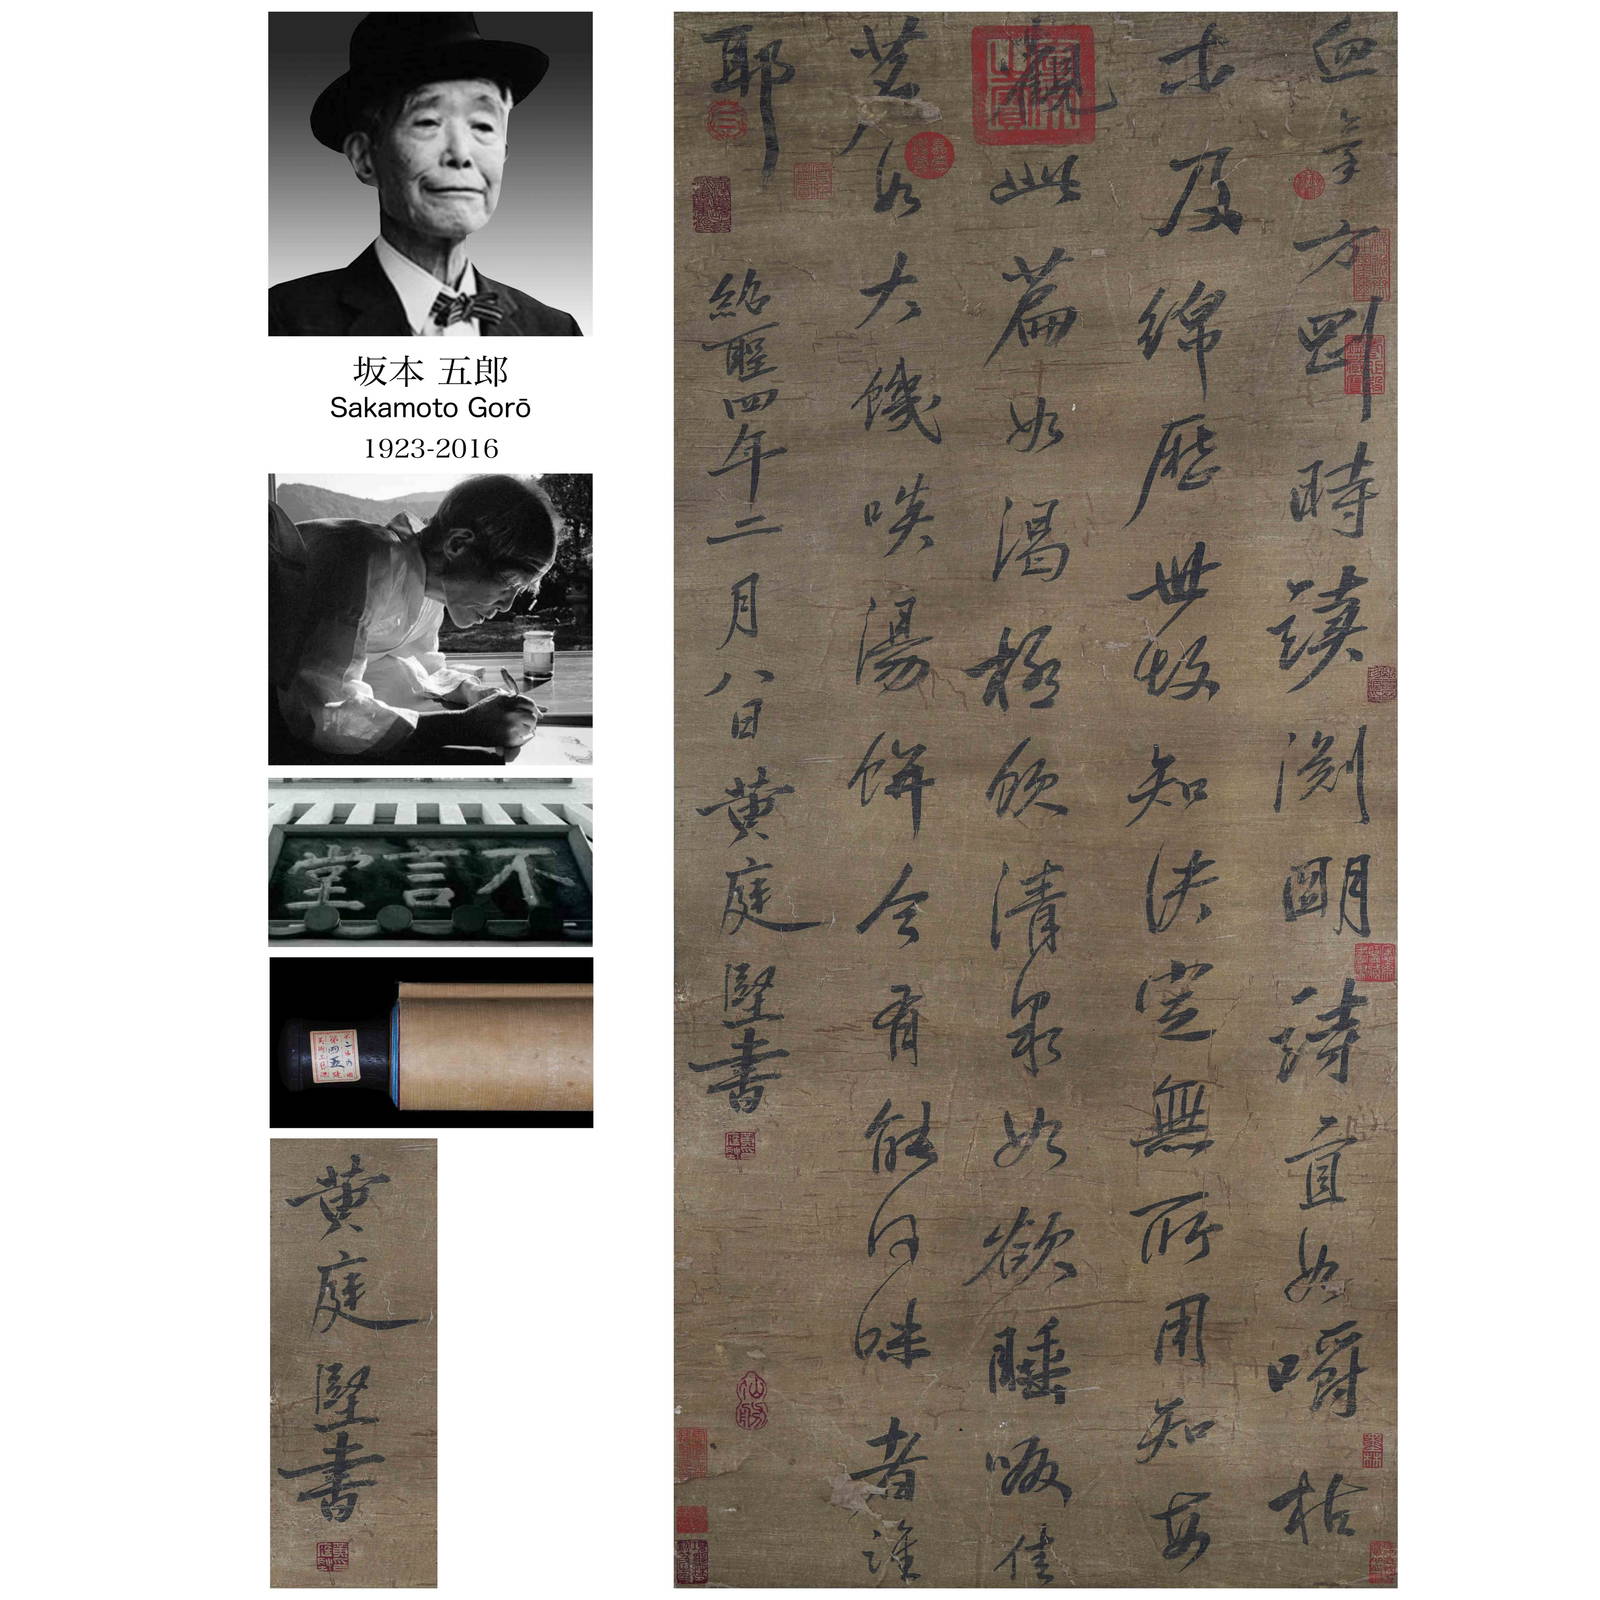 坂本 五郎
Sakamoto Gorō
1923-2016
不言堂
第四五號
黃庭堅書
血氣方剛時讀淵明詩直如嚼枯
木及綿歷世故知決定無所用知每
觀此篇如渴極飲清泉如欲睡啜佳
茗如大饑啖湯餅今有能同味者誰
耶 紹聖四年二月八日黃庭堅書